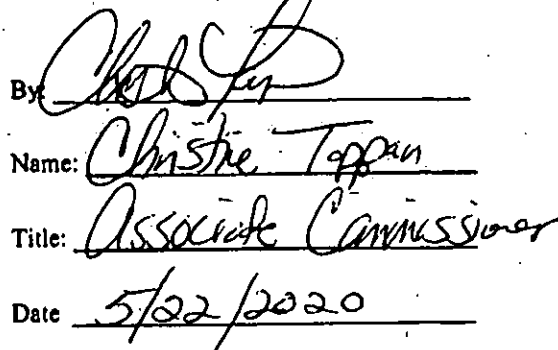 By
Name: Christine Tappan
Title: Associate Commissioner
Date 5/22/2020